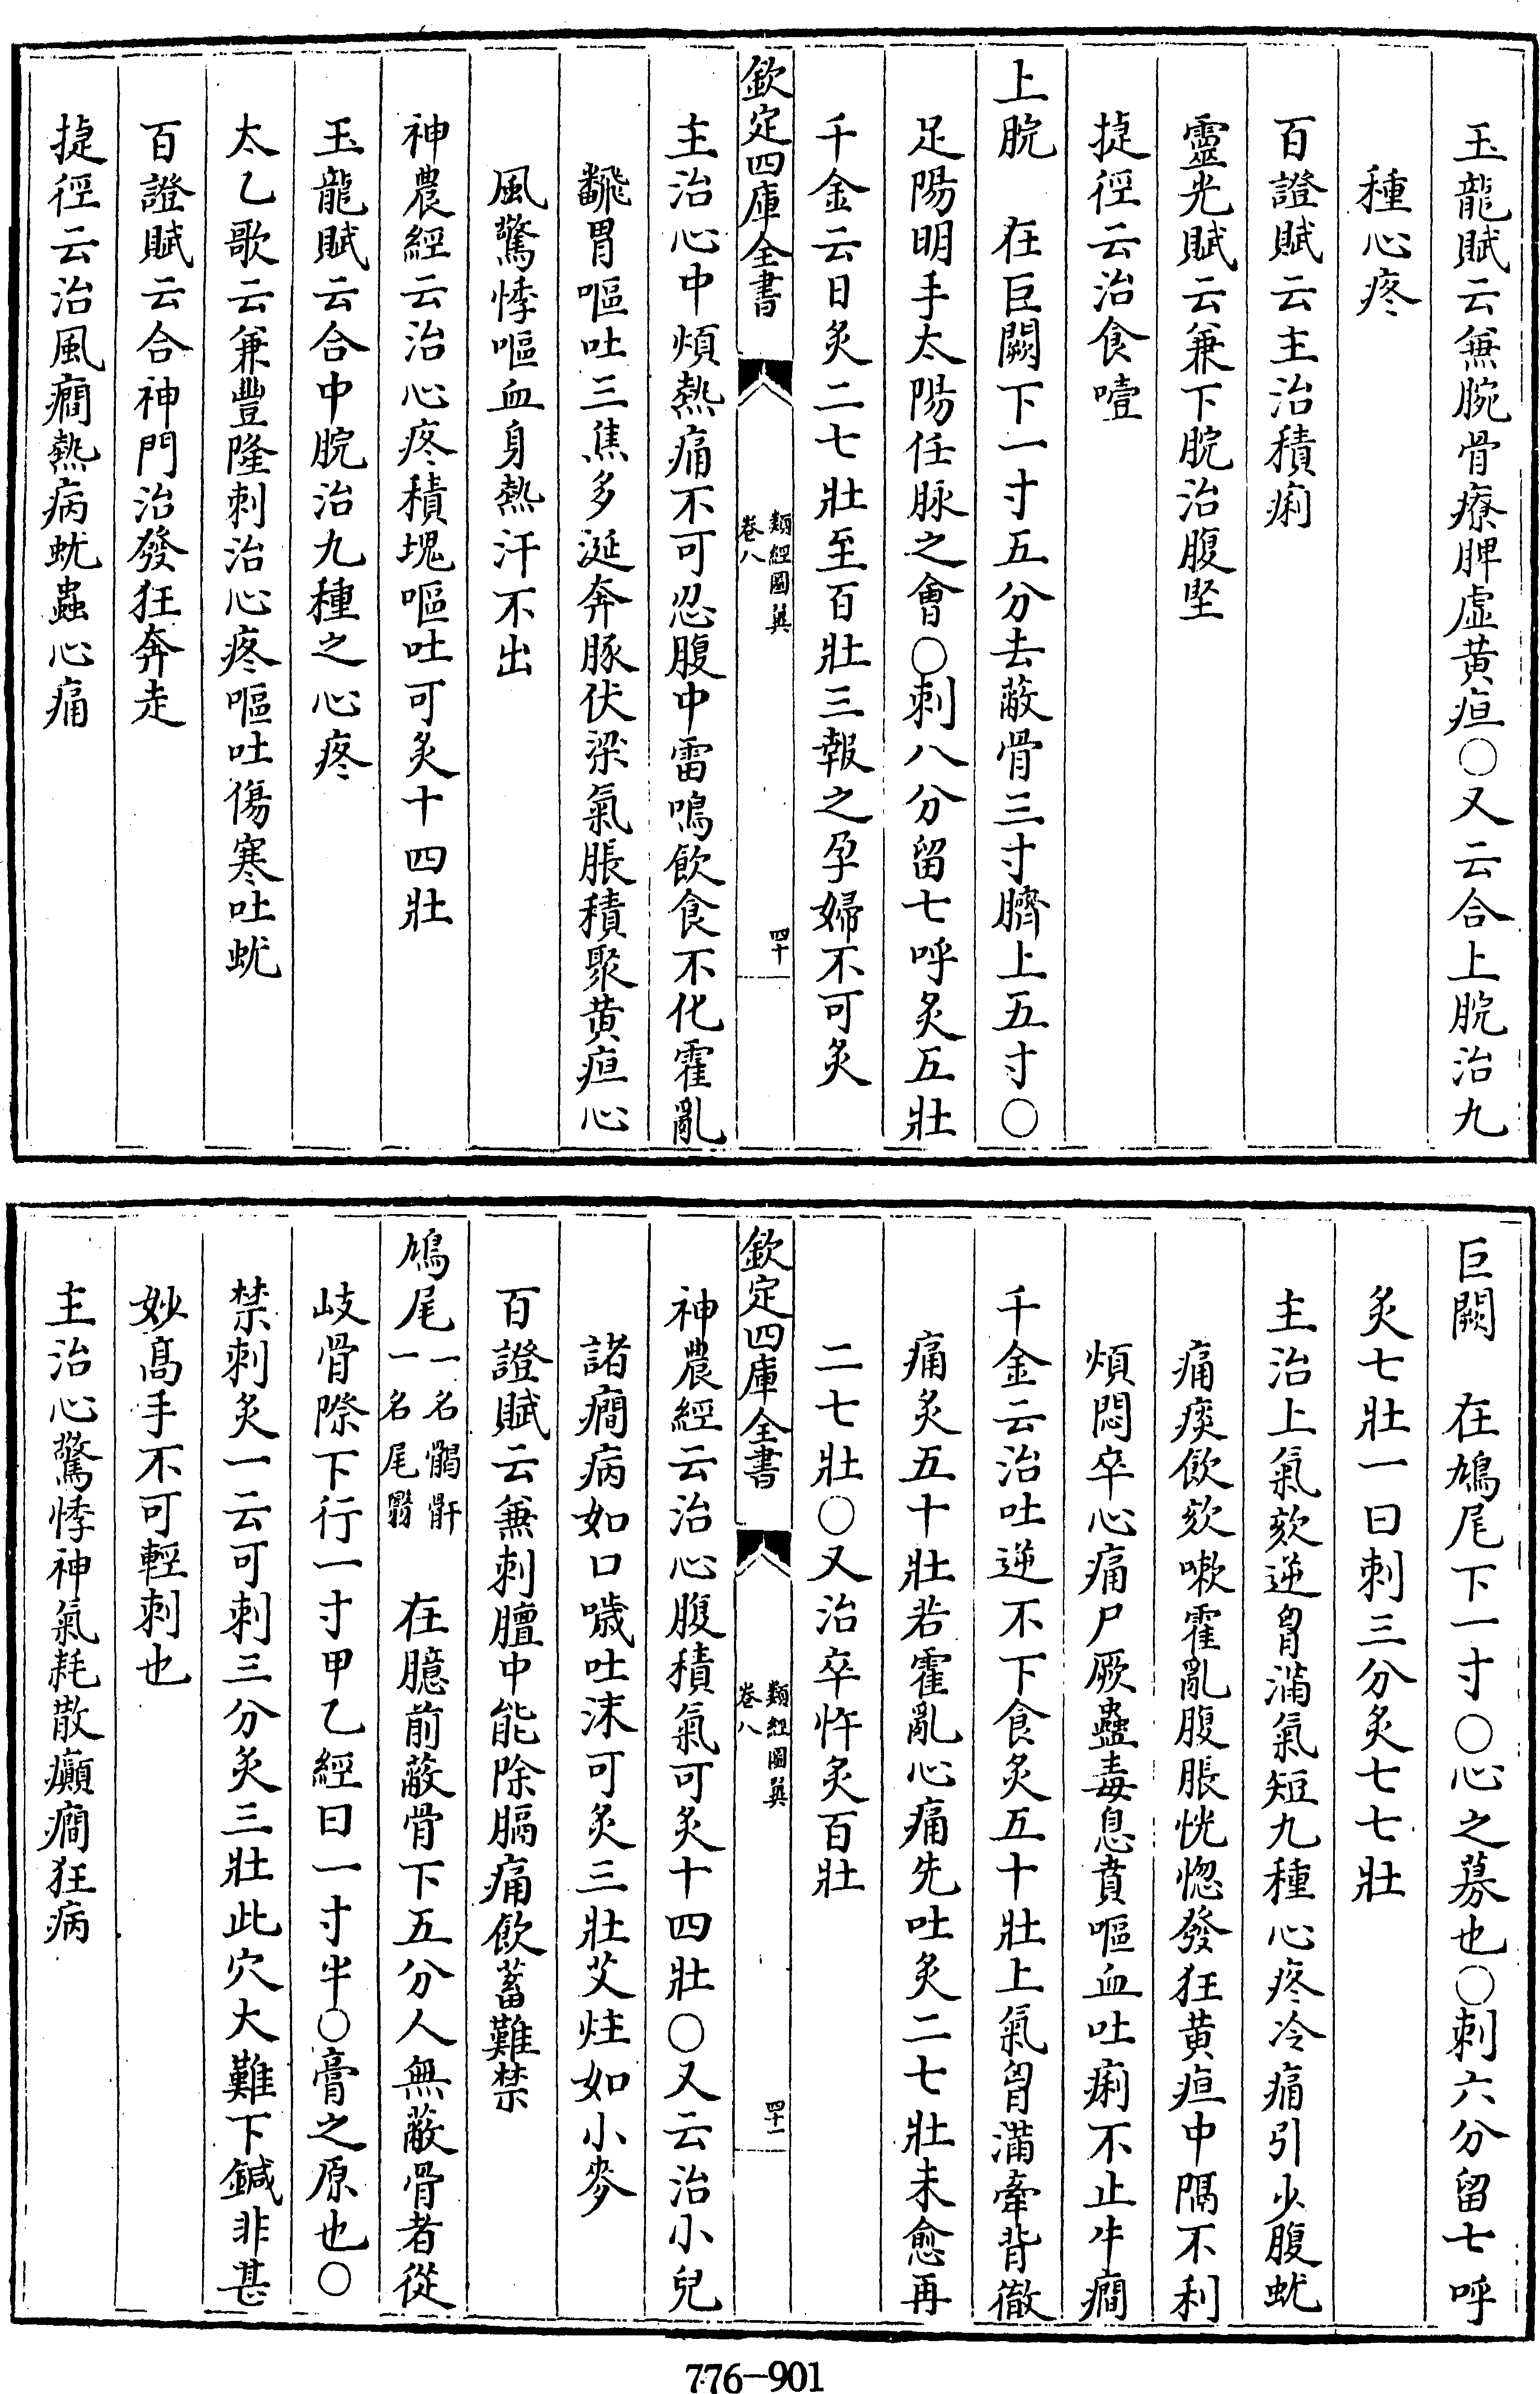 玉龍賦云兼腕骨療脾虛黄疸○又云合上脘治九
種心疼
百證賦云主治積痢
靈光賦云兼下脘治腹堅
捷徑云治食噎
上脘　在巨闕下一寸五分去蔽骨三寸臍上五寸○
足陽明手太陽任脉之會○刺八分留七呼炙五壯
千金云日炙二七壯至百壯三報之孕婦不可炙
欽定四庫全書　類經圖翼卷八　四十
主治心中煩熱痛不可忍腹中雷鳴飲食不化霍亂
飜胃嘔吐三焦多涎奔豚伏梁氣脹積聚黄疸心
風驚悸嘔血身熱汗不出
神農經云治心疼積塊嘔吐可炙十四壯
玉龍賦云合中脘治九種之心疼
太乙歌云兼豐隆刺治心疼嘔吐傷寒吐蚘
百證賦云合神門治發狂奔走
捷徑云治風癎熱病蚘蟲心痛
巨闕　在鳩尾下一寸○心之募也○刺六分留七呼
炙七壯一曰刺三分炙七七壯
主治上氣欬逆胷滿氣短九種心疼冷痛引少腹蚘
痛痰飲欬嗽霍亂腹脹恍惚發狂黄疸中隔不利
煩悶卒心痛尸厥蠱毒息賁嘔血吐痢不止牛癎
千金云治吐逆不下食炙五十壯上氣胷滿牽背徹
痛炙五十壯若霍亂心痛先吐炙二七壯未愈再
二七壯○又治卒忤炙百壯
欽定四庫全書　類經圖翼卷八　四十一
神農經云治心腹積氣可炙十四壯○又云治小兒
諸癎病如口噦吐沫可炙三壯艾炷如小麥
百證賦云兼刺膻中能除膈痛飲蓄難禁
鳩尾一名𩩲骬一名尾翳　在臆前蔽骨下五分人無蔽骨者從
岐骨際下行一寸甲乙經曰一寸半○膏之原也○
禁刺炙一云可刺三分炙三壯此穴大難下鍼非甚
妙高手不可輕刺也
主治心驚悸神氣耗散癲癎狂病
776-901